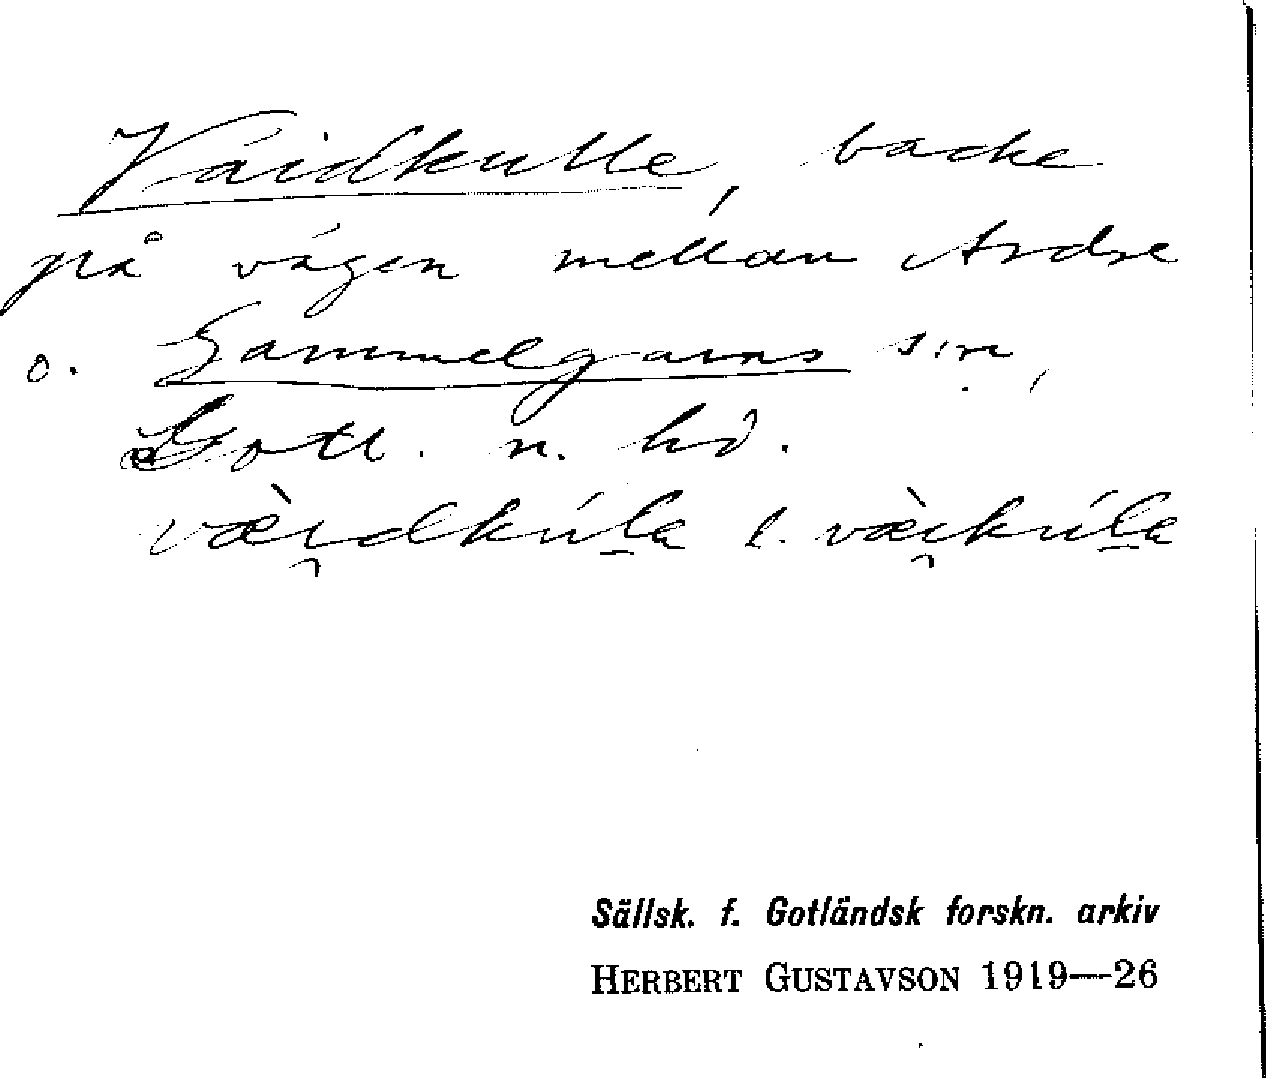 Vaidkulle, backe
på vägen mellan Ardre
o. Gammelgarns sn,
Gotl. n. hd.
væ̀i̯dkúl̲a l. væ̀i̯kúl̲a
Sällsk. f. Gotländsk forskn. arkiv
HERBERT GUSTAVSON 1919—26